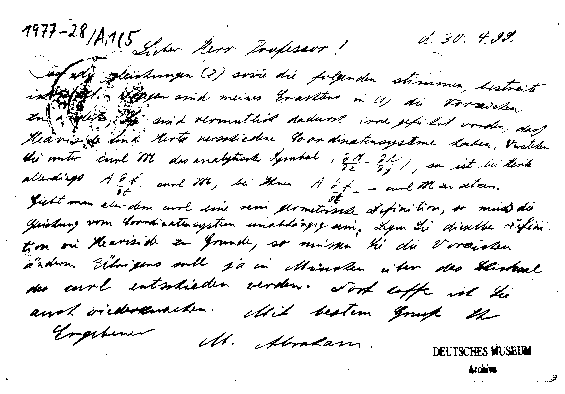 1977-28/A,1(5
Lieber Herr Professor! d. 30. 4. 99.
gleichungen (2) sowie die folgenden stimmen, bestreit
sind meines Erachtens in (1) die Vorzeichen
Sie sind vermuthlich dadurch irre geführt worden, dass
Heaviside und Hertz verschiedene Coordinatensysteme haben. Verstehen
Sie unter curl M das analytische Symbol, so ist bei Hertz
allerdings A curl M, bei Ihnen A = - curl M zu setzen.
Giebt man aber dem curl eine rein geometrische Definition, so muss die
Gleichung vom Coordinatensystem unabhängig sein. Legen Sie dieselbe Defini-
tion wie Heaviside zu Grunde, so müssen Sie die Vorzeichen
ändern. Übrigens soll ja in München über das Schicksal
des curl entschieden werden. Dort hoffe ich Sie
auch wiederzusehen. Mit bestem Gruss Ihr
Ergebener M. Abraham.
DEUTSCHES MUSEUM
Archive